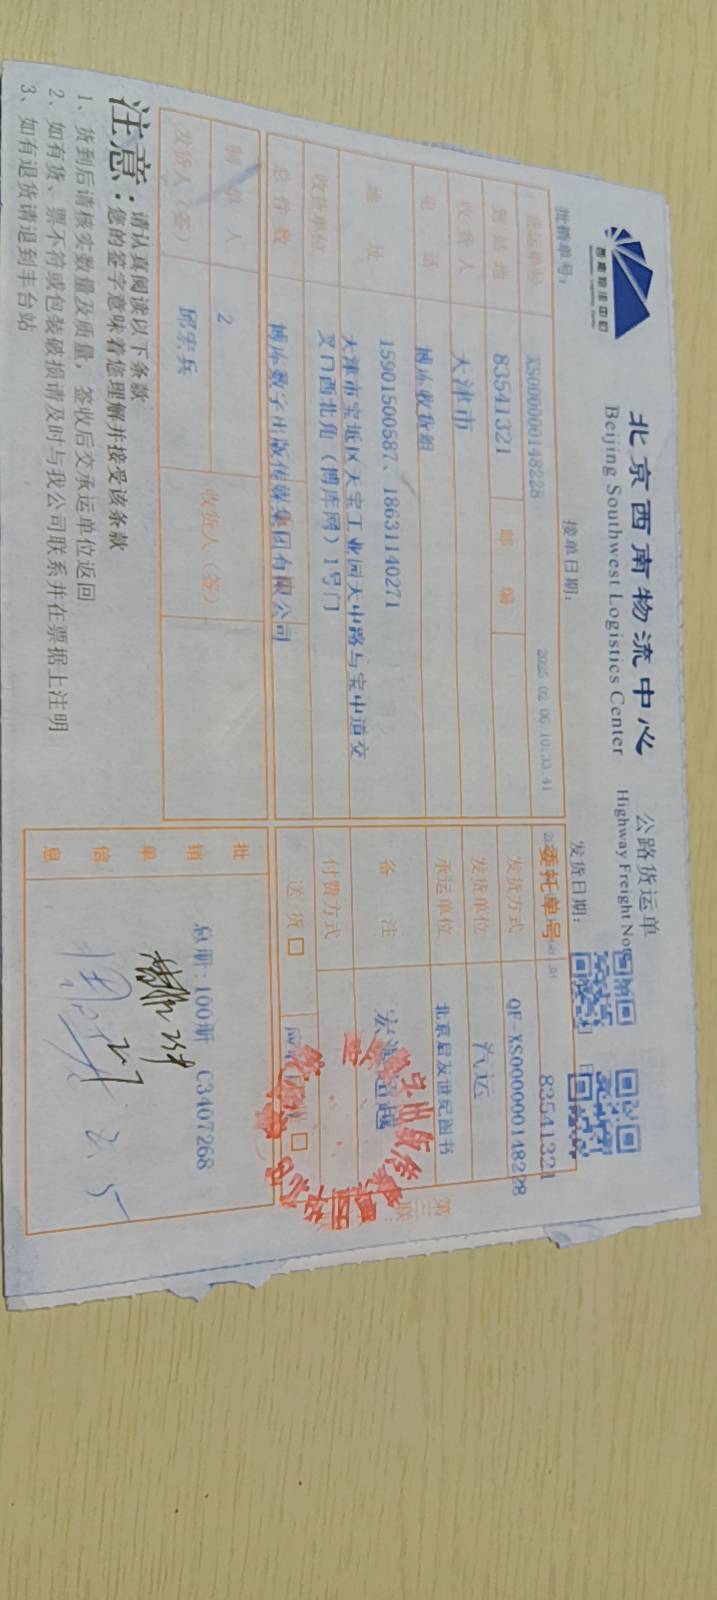 西南物流中心
北京西南物流中心
Beijing Southwest Logistics Center
公路货运单
Highway Freight No
批销单号：
接单日期：
2025 02 06 10:33:41
发货日期：
货运单号 XS000000148228
委托单号 83541321
到站地 83541321
邮编
发货方式 QF-XS000000148228
收货人 天津市
发货单位 汽运
电话 博库收货组
承运单位 北京启友世纪图书
地址 15901500587、18631140271
天津市宝坻区天宝工业园天中路与宝中道交
叉口西北角（博库网）1号门
备注
收货单位 博库数字出版传媒集团有限公司
付费方式
总件数
送货
制单人 2
收货人（签）
发货人（签） 邱宏兵
批销单信息
总册：100册 C3407268
注意：
请认真阅读以下条款
您的签字意味着您理解并接受该条款
1、货到后请核实数量及质量，签收后交承运单位返回
2、如有货、票不符或包装破损请及时与我公司联系并在票据上注明
3、如有退货请退到丰台站